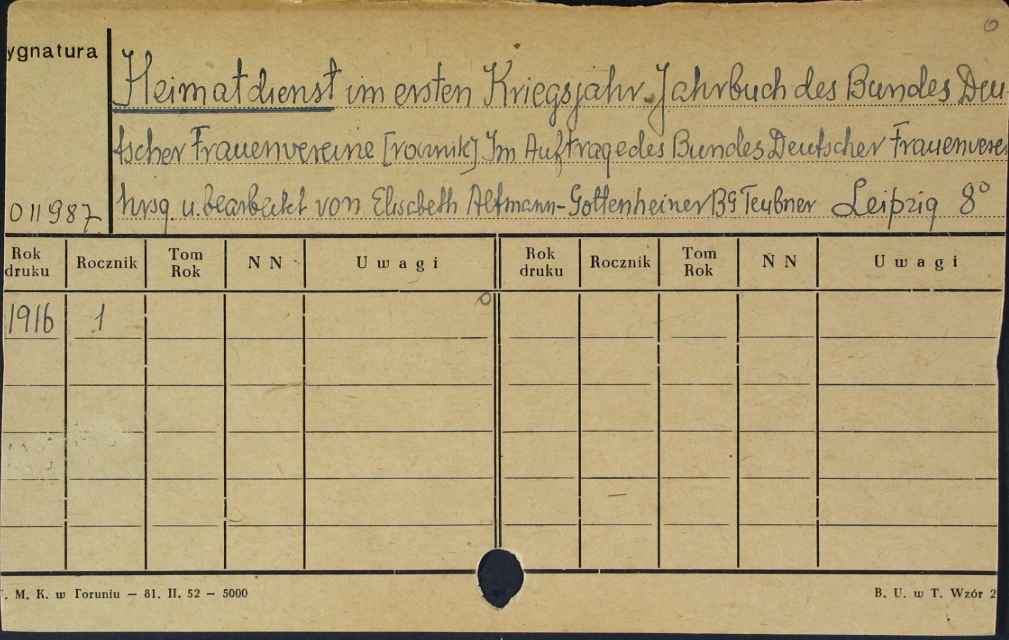 ygnatura
Heimatdienst im ersten Kriegsjahr. Jahrbuch des Bundes Deu-
tscher Frauenvereine [rocznik] Im Auftrage des Bundes Deutscher Frauenverei
011987 hrsg. u. bearbeitet von Elisabeth Altmann-Gottenheiner BG Teubner Leipzig 8°
Rok druku Rocznik Tom Rok N N U w a g i Rok druku Rocznik Tom Rok N N U w a g i
1916 1
. M. K. w Toruniu – 81. II. 52 – 5000 B. U. w T. Wzór 2